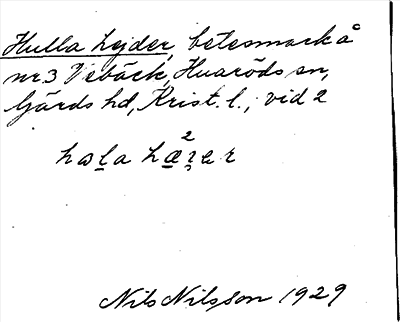 Hulla hejder, betesmark å
nr 3 Vebäck, Huaröds sn,
Gärds hd, Krist. l.; vid 2
Nils Nilsson 1929